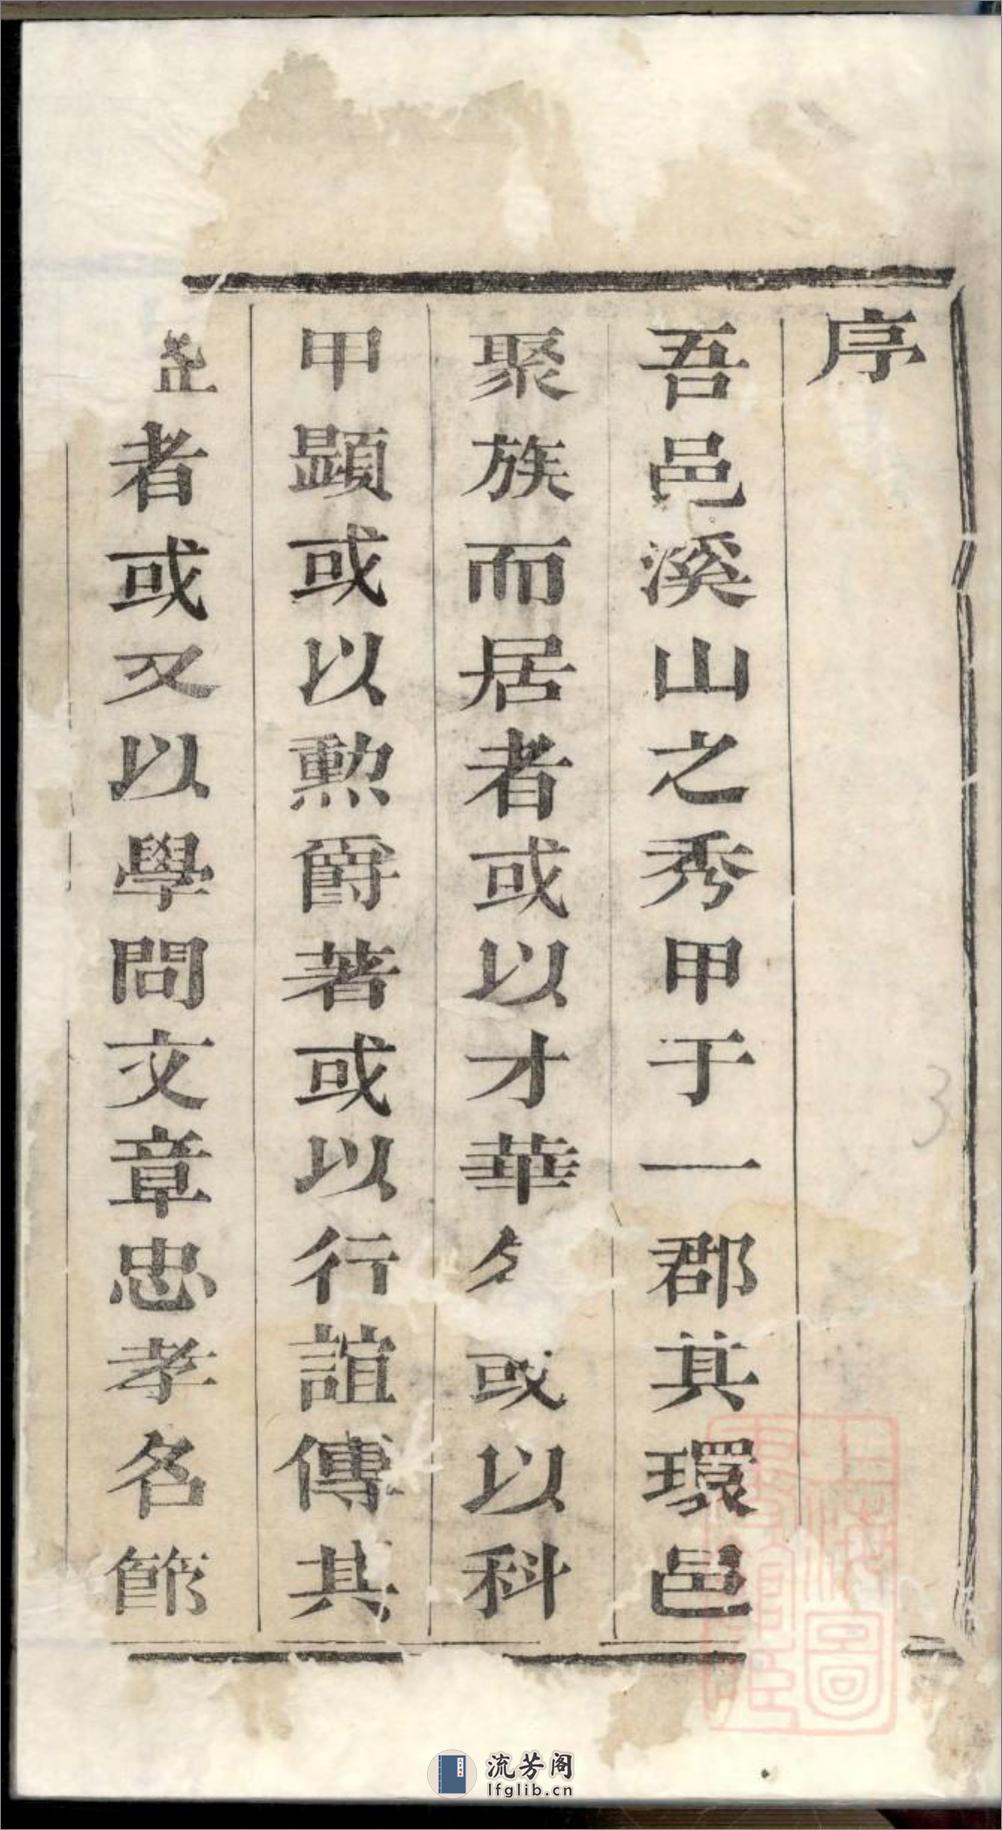 序
吾邑溪山之秀甲于一郡其環邑
聚族而居者或以才華或以科
甲顕或以勲爵著或以行誼傳其
者或又以學問文章忠孝名節
上海圖書館藏
流芳阁
lfglib.cn
3